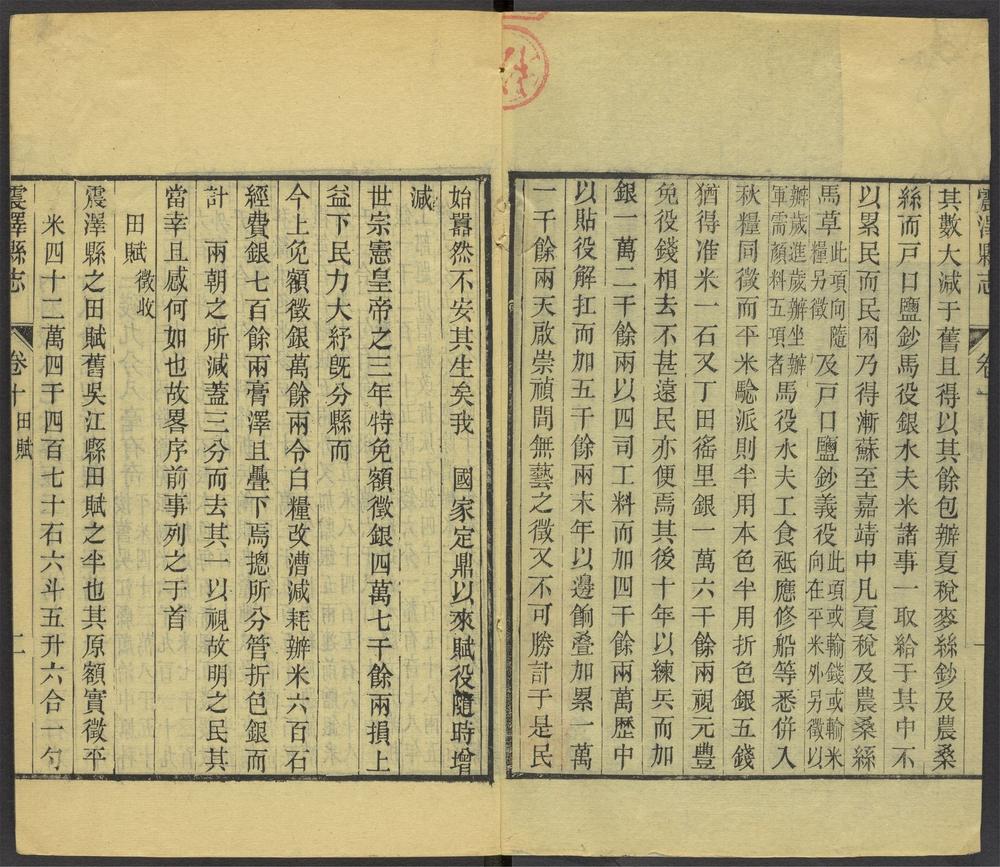 震澤縣志 卷十
其數大減于舊且得以其餘包辦夏稅麥絲鈔及農桑
絲而戶口鹽鈔馬役銀水夫米諸事一取給于其中不
以累民而民困乃得漸蘇至嘉靖中凡夏稅及農桑絲
馬草此項向隨糧另徵及戶口鹽鈔義役此項或輸錢或輸米向在平米外另徵以
辦歲進歲辦坐辦軍需顏料五項者馬役水夫工食祗應修船等悉併入
秋糧同徵而平米驗派則半用本色半用折色銀五錢
猶得准米一石又丁田徭里銀一萬六千餘兩視元豐
免役錢相去不甚遠民亦便焉其後十年以練兵而加
銀一萬二千餘兩以四司工料而加四千餘兩萬歷中
以貼役解扛而加五千餘兩末年以邊餉叠加累一萬
一千餘兩天啟崇禎間無藝之徵又不可勝計于是民
始囂然不安其生矣我 國家定鼎以來賦役隨時增
減
世宗憲皇帝之三年特免額徵銀四萬七千餘兩損上
益下民力大紓旣分縣而
今上免額徵銀萬餘兩令白糧改漕減耗辦米六百石
經費銀七百餘兩膏澤且疊下焉揔所分管折色銀而
計 兩朝之所減蓋三分而去其一以視故明之民其
當幸且感何如也故畧序前事列之于首
田賦徵收
震澤縣之田賦舊吳江縣田賦之半也其原額實徵平
米四十二萬四千四百七十石六斗五升六合一勺
震澤縣志 卷十 田賦 二